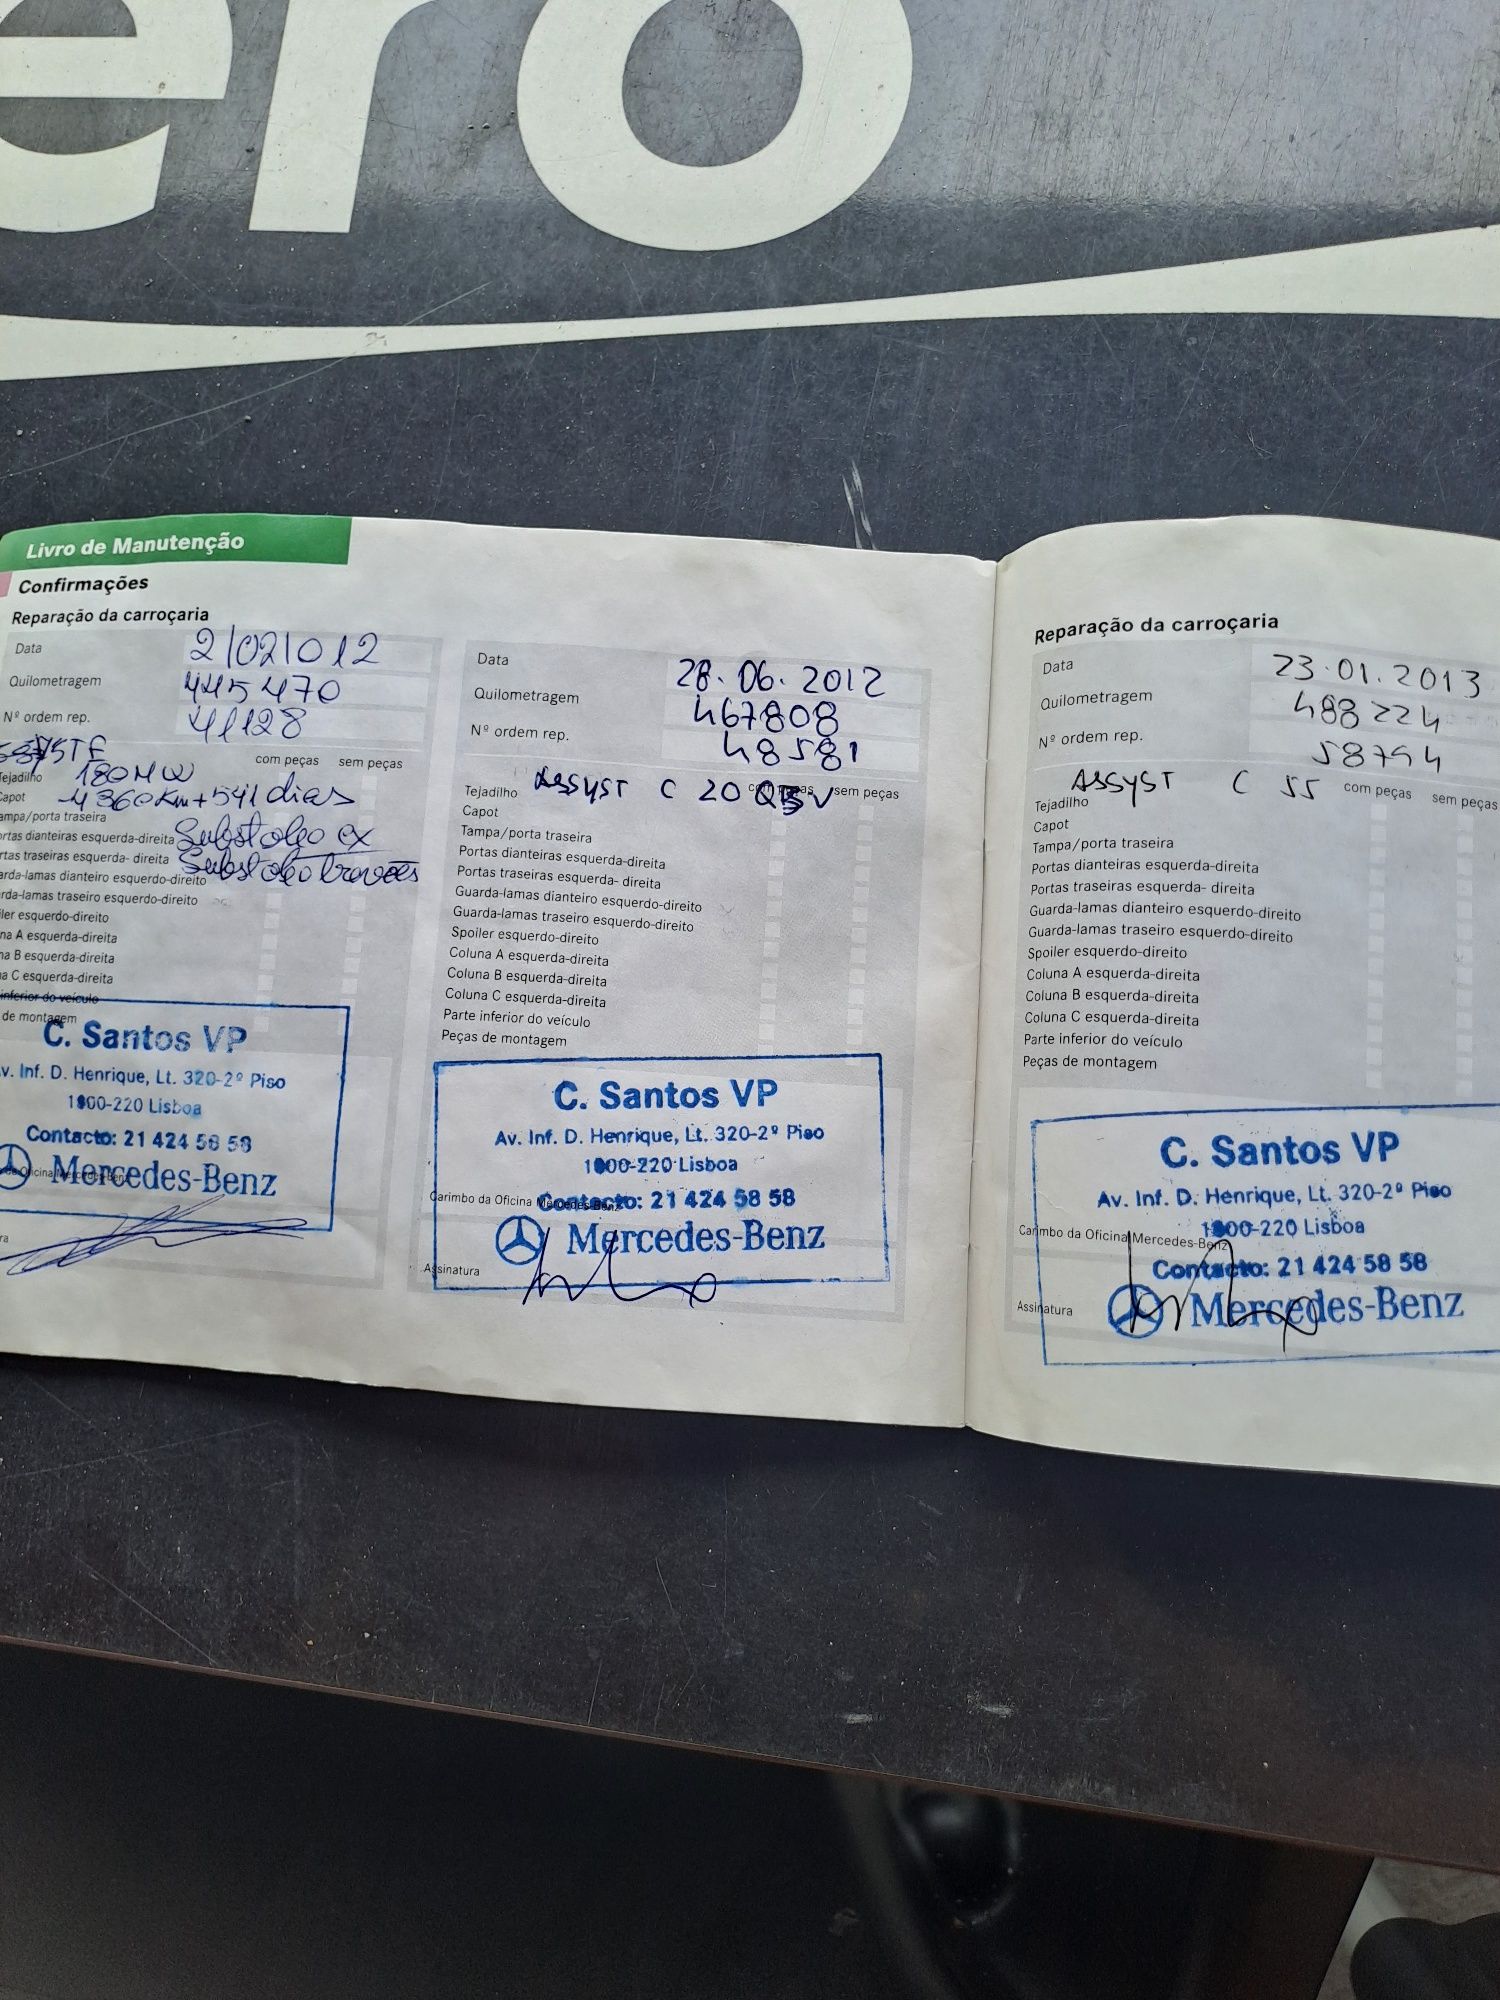 ero
Livro de Manutenção
Confirmações
Reparação da carroçaria
Data 2/02/012
Quilometragem 445470
Nº ordem rep. 41128
com peças sem peças
180MW
Tejadilho
-4360Km+541 dias
Capot
ampa/porta traseira
ortas dianteiras esquerda-direita Subst oleo cx
rtas traseiras esquerda- direita Subst oleo travões
arda-lamas dianteiro esquerdo-direito
rda-lamas traseiro esquerdo-direito
iler esquerdo-direito
na A esquerda-direita
na B esquerda-direita
a C esquerda-direita
inferior do veículo
de montagem
C. Santos VP
v. Inf. D. Henrique, Lt. 320-2º Piso
1800-220 Lisboa
Contacto: 21 424 58 58
Mercedes-Benz
ra
Data 28.06.2012
Quilometragem 467808
Nº ordem rep. 48581
ASSYST C 20
com peças sem peças
Tejadilho
Capot
Tampa/porta traseira
Portas dianteiras esquerda-direita
Portas traseiras esquerda- direita
Guarda-lamas dianteiro esquerdo-direito
Guarda-lamas traseiro esquerdo-direito
Spoiler esquerdo-direito
Coluna A esquerda-direita
Coluna B esquerda-direita
Coluna C esquerda-direita
Parte inferior do veículo
Peças de montagem
C. Santos VP
Av. Inf. D. Henrique, Lt. 320-2º Piso
1800-220 Lisboa
Contacto: 21 424 58 58
Carimbo da Oficina Mercedes-Benz
Mercedes-Benz
Assinatura
Reparação da carroçaria
Data 23.01.2013
Quilometragem 488224
Nº ordem rep. 58754
ASSYST C 55
com peças sem peças
Tejadilho
Capot
Tampa/porta traseira
Portas dianteiras esquerda-direita
Portas traseiras esquerda- direita
Guarda-lamas dianteiro esquerdo-direito
Guarda-lamas traseiro esquerdo-direito
Spoiler esquerdo-direito
Coluna A esquerda-direita
Coluna B esquerda-direita
Coluna C esquerda-direita
Parte inferior do veículo
Peças de montagem
C. Santos VP
Av. Inf. D. Henrique, Lt. 320-2º Piso
1800-220 Lisboa
Carimbo da Oficina Mercedes-Benz
Contacto: 21 424 58 58
Assinatura
Mercedes-Benz